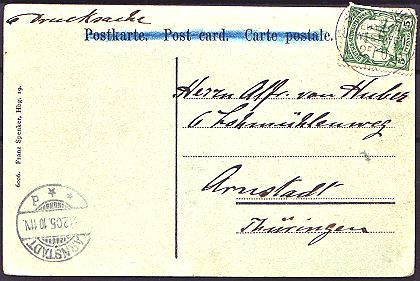 Drucksache
Postkarte. Post card. Carte postale.
Herrn Alfr. von Huber
6 Lohmühlenweg
Arnstadt
Thüringen
6006. Franz Spenker, Hbg. 19.
ARNSTADT